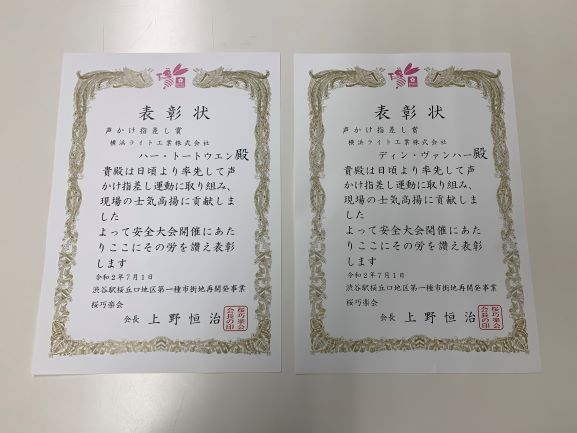 表彰状
声かけ指差し賞
横浜ライト工業株式会社
ハー・トートウエン殿
貴殿は日頃より率先して声
かけ指差し運動に取り組み、
現場の士気高揚に貢献しま
した
よって安全大会開催にあた
りここにその労を讃え表彰
します
令和2年7月1日
渋谷駅桜丘口地区第一種市街地再開発事業
桜巧楽会
会長 上野恒治
桜巧楽会
会長の印
表彰状
声かけ指差し賞
横浜ライト工業株式会社
ディン・ヴァンハー殿
貴殿は日頃より率先して声
かけ指差し運動に取り組み、
現場の士気高揚に貢献しま
した
よって安全大会開催にあた
りここにその労を讃え表彰
します
令和2年7月1日
渋谷駅桜丘口地区第一種市街地再開発事業
桜巧楽会
会長 上野恒治
桜巧楽会
会長の印